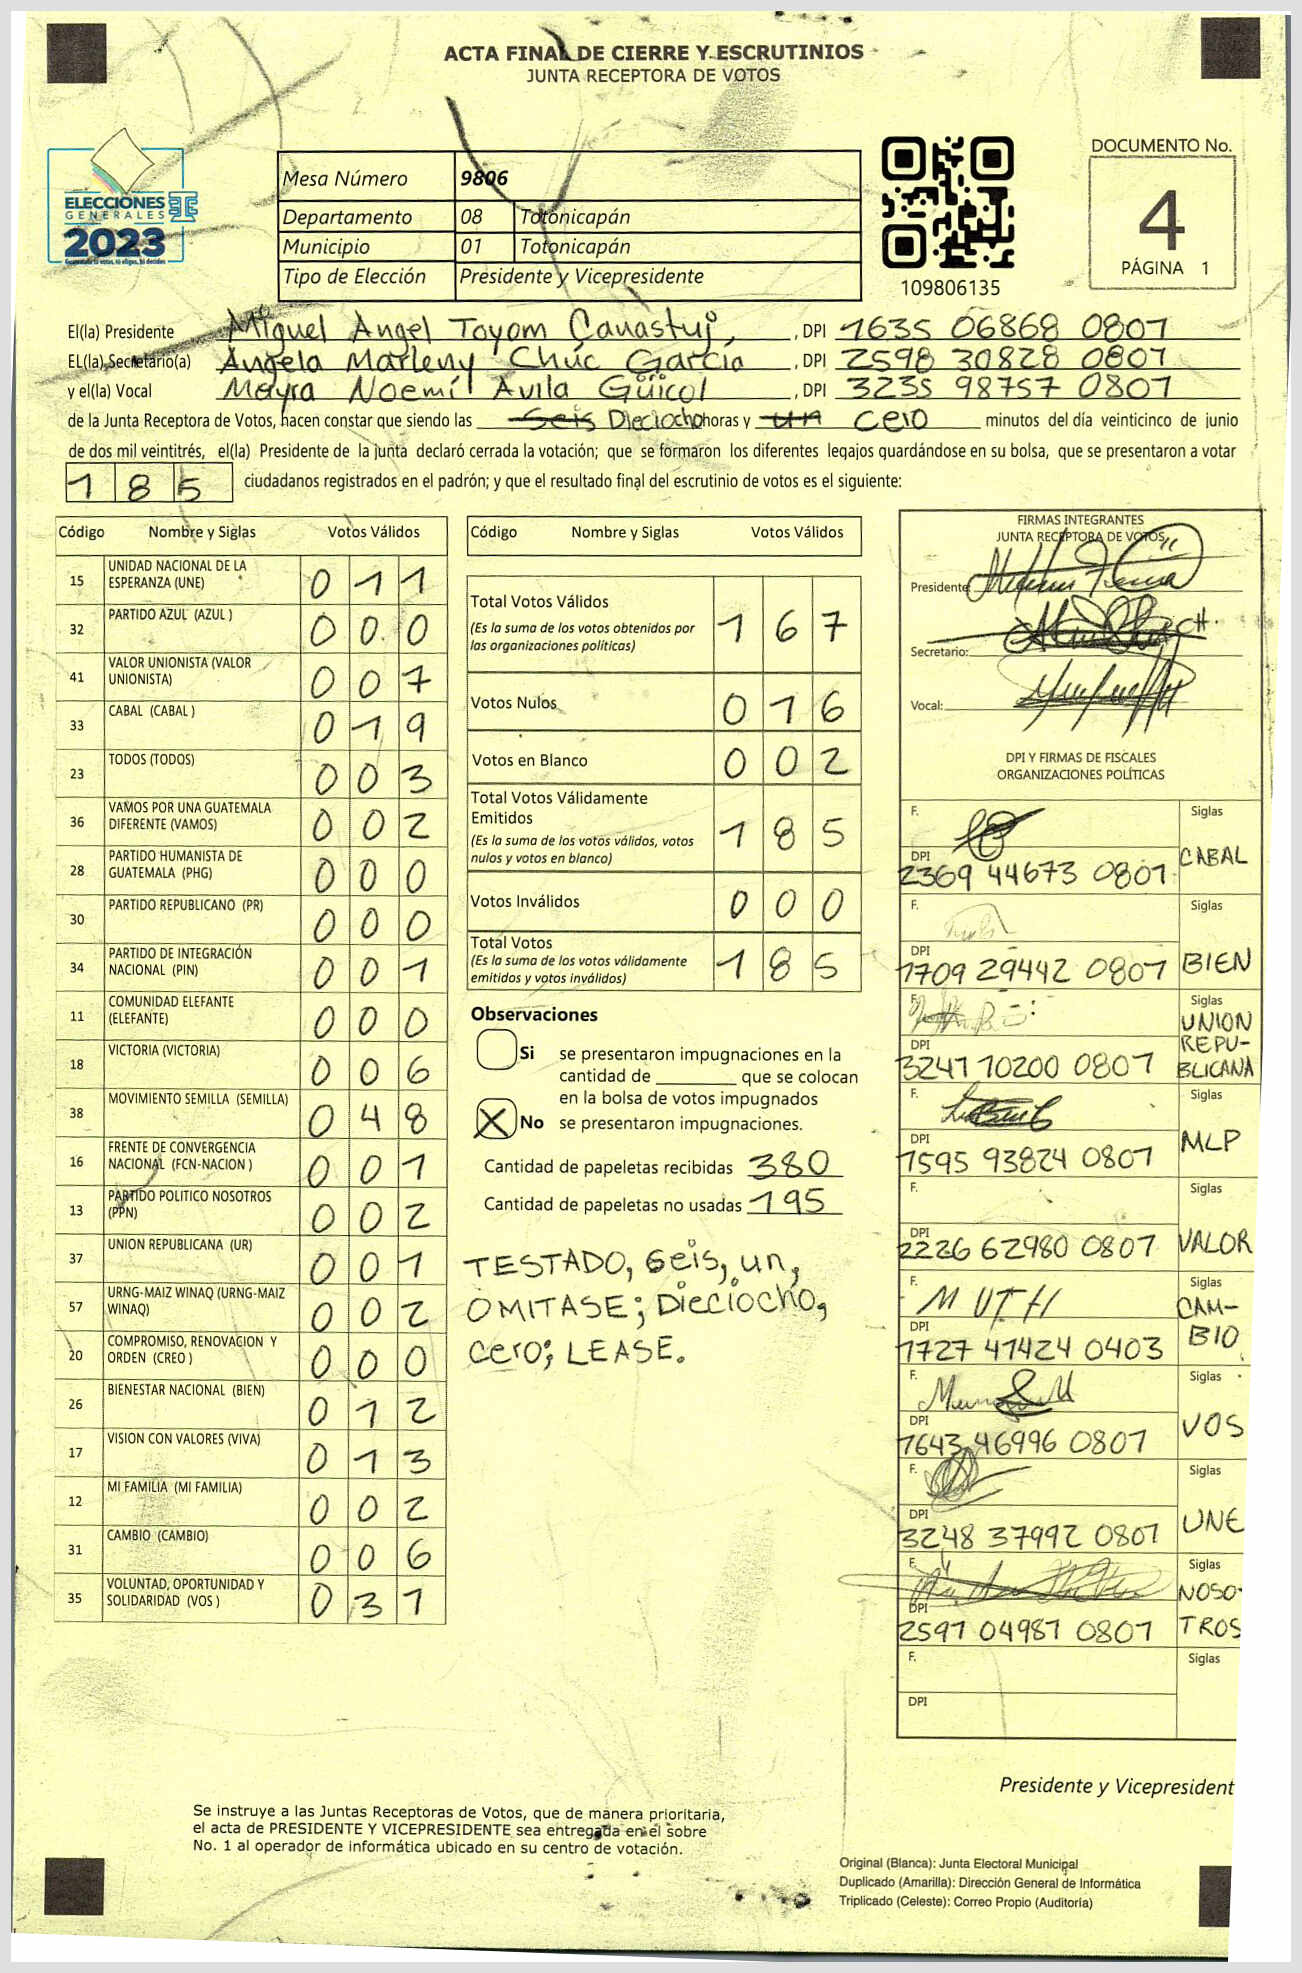 ACTA FINAL DE CIERRE Y ESCRUTINIOS
JUNTA RECEPTORA DE VOTOS
ELECCIONES
GENERALES
2023
Mesa Número 9806
Departamento 08 Totonicapán
Municipio 01 Totonicapán
Tipo de Elección Presidente y Vicepresidente
109806135
DOCUMENTO No.
4
PÁGINA 1
El(la) Presidente Miguel Angel Toyom Canastuj, , DPI 1635 06868 0801
EL(la) Secretario(a) Angela Marleny Chúc García , DPI 2598 30828 0801
y el(la) Vocal Mayra Noemí Avila Güicol , DPI 3235 98757 0801
de la Junta Receptora de Votos, hacen constar que siendo las Seis Dieciocho horas y un cero minutos del día veinticinco de junio
de dos mil veintitrés, el(la) Presidente de la junta declaró cerrada la votación; que se formaron los diferentes legajos guardándose en su bolsa, que se presentaron a votar
185 ciudadanos registrados en el padrón; y que el resultado final del escrutinio de votos es el siguiente:
Código Nombre y Siglas Votos Válidos
15 UNIDAD NACIONAL DE LA ESPERANZA (UNE) 0 1 1
32 PARTIDO AZUL (AZUL ) 0 0 0
41 VALOR UNIONISTA (VALOR UNIONISTA) 0 0 7
33 CABAL (CABAL ) 0 1 9
23 TODOS (TODOS) 0 0 3
36 VAMOS POR UNA GUATEMALA DIFERENTE (VAMOS) 0 0 2
28 PARTIDO HUMANISTA DE GUATEMALA (PHG) 0 0 0
30 PARTIDO REPUBLICANO (PR) 0 0 0
34 PARTIDO DE INTEGRACIÓN NACIONAL (PIN) 0 0 1
11 COMUNIDAD ELEFANTE (ELEFANTE) 0 0 0
18 VICTORIA (VICTORIA) 0 0 6
38 MOVIMIENTO SEMILLA (SEMILLA) 0 4 8
16 FRENTE DE CONVERGENCIA NACIONAL (FCN-NACION ) 0 0 1
13 PARTIDO POLITICO NOSOTROS (PPN) 0 0 2
37 UNION REPUBLICANA (UR) 0 0 1
57 URNG-MAIZ WINAQ (URNG-MAIZ WINAQ) 0 0 2
20 COMPROMISO, RENOVACION Y ORDEN (CREO ) 0 0 0
26 BIENESTAR NACIONAL (BIEN) 0 1 2
17 VISION CON VALORES (VIVA) 0 1 3
12 MI FAMILIA (MI FAMILIA) 0 0 2
31 CAMBIO (CAMBIO) 0 0 6
35 VOLUNTAD, OPORTUNIDAD Y SOLIDARIDAD (VOS ) 0 3 1
Código Nombre y Siglas Votos Válidos
Total Votos Válidos 1 6 7
(Es la suma de los votos obtenidos por
las organizaciones políticas)
Votos Nulos 0 1 6
Votos en Blanco 0 0 2
Total Votos Válidamente
Emitidos 1 8 5
(Es la suma de los votos válidos, votos
nulos y votos en blanco)
Votos Inválidos 0 0 0
Total Votos 1 8 5
(Es la suma de los votos válidamente
emitidos y votos inválidos)
Observaciones
Si se presentaron impugnaciones en la
cantidad de ________ que se colocan
en la bolsa de votos impugnados
X No se presentaron impugnaciones.
Cantidad de papeletas recibidas 380
Cantidad de papeletas no usadas 195
TESTADO, Seis, un,
OMITASE; Dieciocho,
cero; LEASE.
FIRMAS INTEGRANTES
JUNTA RECEPTORA DE VOTOS
Presidente:
Secretario:
Vocal:
DPI Y FIRMAS DE FISCALES
ORGANIZACIONES POLÍTICAS
F. Siglas
DPI 2369 44673 0801 CABAL
F. Siglas
DPI 1709 29442 0801 BIEN
F. Siglas
DPI 3241 10200 0801 UNION REPU-BLICANA
F. Siglas
DPI 1595 93824 0801 MLP
F. Siglas
DPI 2226 62980 0801 VALOR
F. Siglas
DPI 1727 41424 0403 CAM-BIO
F. Siglas
DPI 1643 46996 0801 VOS
F. Siglas
DPI 3248 37992 0801 UNE
F. Siglas
DPI 2591 04981 0801 NOSO-TROS
F. Siglas
DPI
Presidente y Vicepresident
Se instruye a las Juntas Receptoras de Votos, que de manera prioritaria,
el acta de PRESIDENTE Y VICEPRESIDENTE sea entregada en el sobre
No. 1 al operador de informática ubicado en su centro de votación.
Original (Blanca): Junta Electoral Municipal
Duplicado (Amarilla): Dirección General de Informática
Triplicado (Celeste): Correo Propio (Auditoría)